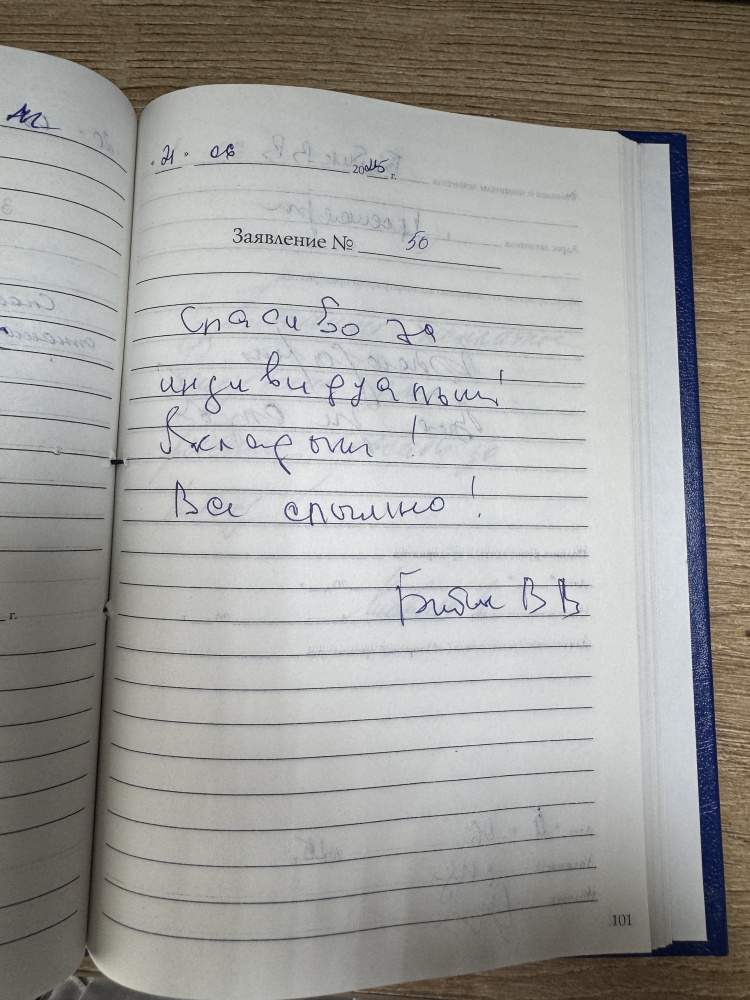 "21" 06 2025 г.
Заявление № 50
Спасибо за
индивидуальный
вкладыш!
Все отлично!
Бибик В В
г.
101